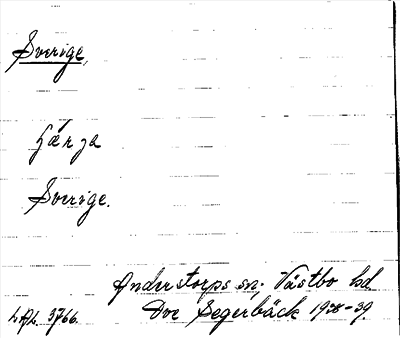 Sverige,
Sverige.
Anderstorps sn; Västbo hd
Segerbäck 1928-39.
LAL. 3766.